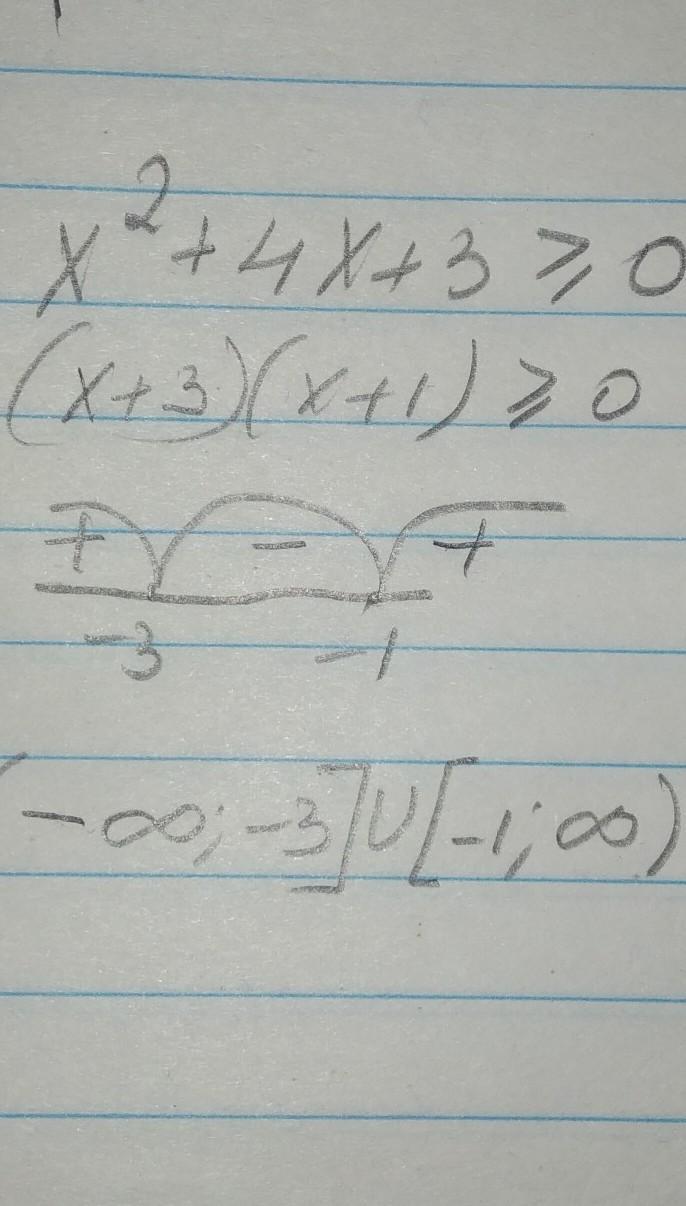 x²+4x+3 ⩾ 0
(x+3)(x+1) ⩾ 0
+ − +
-3 -1
(-∞; -3]∪[-1; ∞)